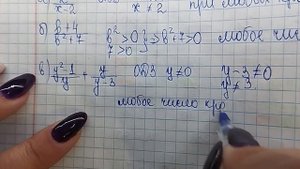 x-2
при любых
б) b+4 / b²+7   b² ≥ 0 } => b²+7 > 0   любое чис
7 > 0
в) y²-1 / y + y / y-3   ОДЗ y≠0   y-3≠0
y≠3
любое число кро